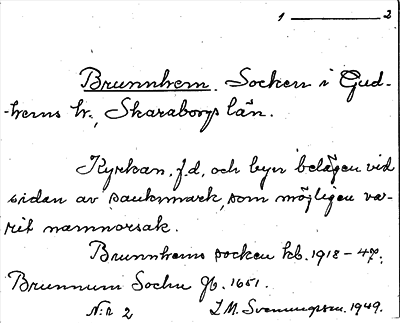 1 ———— 2
Brunnhem. Socken i Gud-
-hems hr., Skaraborgs län.
Kyrkan, f.d., och byn belägen vid
sidan av sankmark, som möjligen va-
rit namnorsak.
Brunnhems socken kb. 1918-47.
Brunnum Sochn Jb. 1651.
N:r 2 I.M. Svenungsson. 1949.